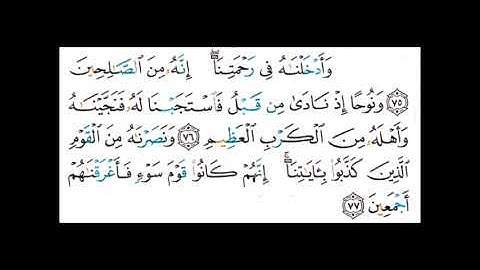 وَأَدْخَلْنَـٰهُ فِى رَحْمَتِنَآ ۖ إِنَّهُۥ مِنَ ٱلصَّـٰلِحِينَ
﴿٧٥﴾ وَنُوحًا إِذْ نَادَىٰ مِن قَبْلُ فَٱسْتَجَبْنَا لَهُۥ فَنَجَّيْنَـٰهُ
وَأَهْلَهُۥ مِنَ ٱلْكَرْبِ ٱلْعَظِيمِ ﴿٧٦﴾ وَنَصَرْنَـٰهُ مِنَ ٱلْقَوْمِ
ٱلَّذِينَ كَذَّبُوا۟ بِـَٔايَـٰتِنَآ ۚ إِنَّهُمْ كَانُوا۟ قَوْمَ سَوْءٍ فَأَغْرَقْنَـٰهُمْ
أَجْمَعِينَ ﴿٧٧﴾